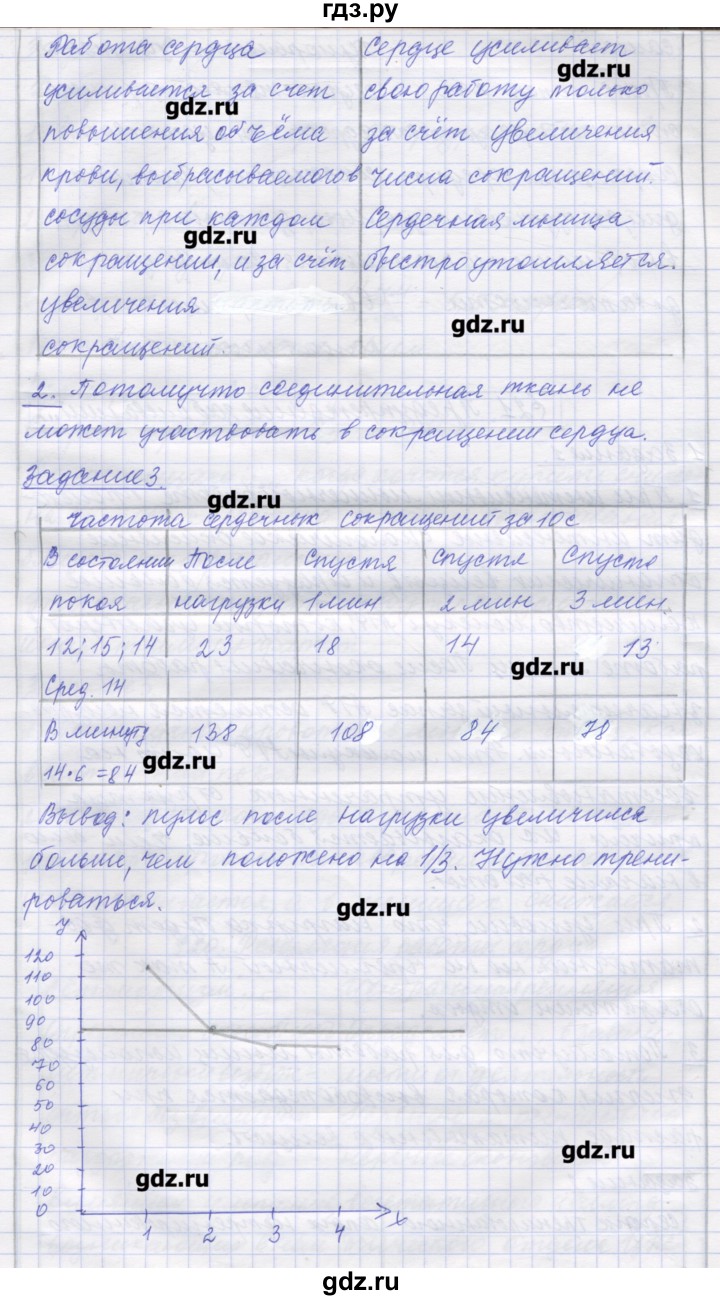 гдз.ру
Работа сердца
усиливается за счет
повышения объёма
крови, выбрасываемого в
сосуды при каждом
сокращении, и за счёт
увеличения
сокращений.
Сердце усиливает
свою работу только
за счёт увеличения
числа сокращений.
Сердечная мышца
быстро утомляется.
gdz.ru
gdz.ru
gdz.ru
gdz.ru
2. Потомучто соединительная ткань не
может участвовать в сокращении сердца.
Задание 3.
gdz.ru
Частота сердечных сокращений за 10с
В состоянии После Спустя Спустя Спустя
покоя нагрузки 1 мин 2 мин 3 мин.
12; 15; 14 23 18 14 13
Сред. 14
gdz.ru
В минуту 138 108 84 78
14·6 = 84
gdz.ru
Вывод: пульс после нагрузки увеличился
больше, чем положено на 1/3. Нужно трени-
роваться.
gdz.ru
У
120
110
100
90
80
70
60
50
40
30
20
10
0
1 2 3 4 х
gdz.ru
gdz.ru
gdz.ru